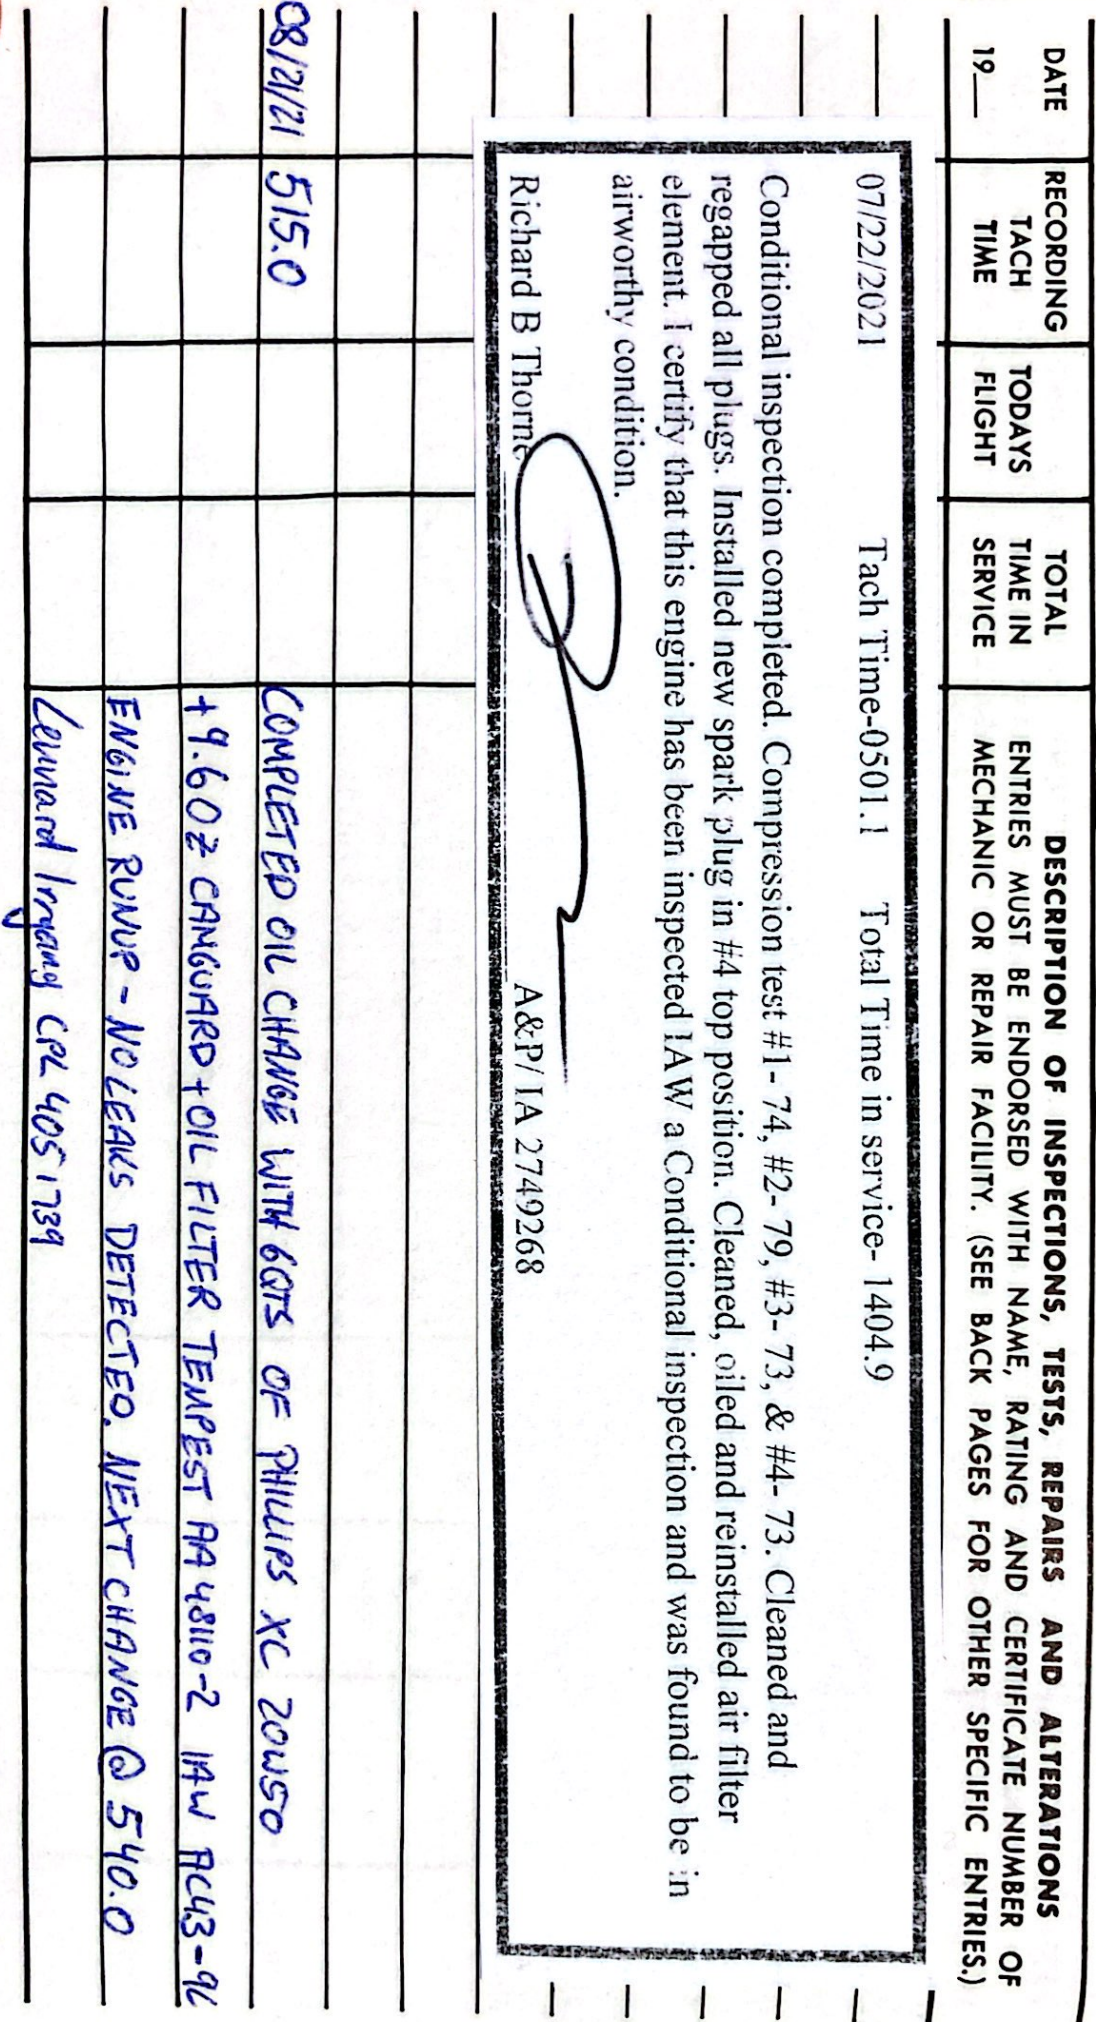 DATE RECORDING TODAYS TOTAL DESCRIPTION OF INSPECTIONS, TESTS, REPAIRS AND ALTERATIONS
TACH FLIGHT TIME IN ENTRIES MUST BE ENDORSED WITH NAME, RATING AND CERTIFICATE NUMBER OF
19__ TIME SERVICE MECHANIC OR REPAIR FACILITY. (SEE BACK PAGES FOR OTHER SPECIFIC ENTRIES.)
07/22/2021 Tach Time-0501.1 Total Time in service- 1404.9
Conditional inspection completed. Compression test #1- 74, #2- 79, #3- 73, & #4- 73. Cleaned and
regapped all plugs. Installed new spark plug in #4 top position. Cleaned, oiled and reinstalled air filter
element. I certify that this engine has been inspected IAW a Conditional inspection and was found to be in
airworthy condition.
Richard B Thorne A&P/ IA 2749268
08/21/21 515.0 COMPLETED OIL CHANGE WITH 6QTS OF PHILLIPS XC 20W50
+9.6OZ CAMGUARD + OIL FILTER TEMPEST AA48110-2 IAW AC43-9C
ENGINE RUNUP - NO LEAKS DETECTED. NEXT CHANGE @ 540.0
CPL 4051739